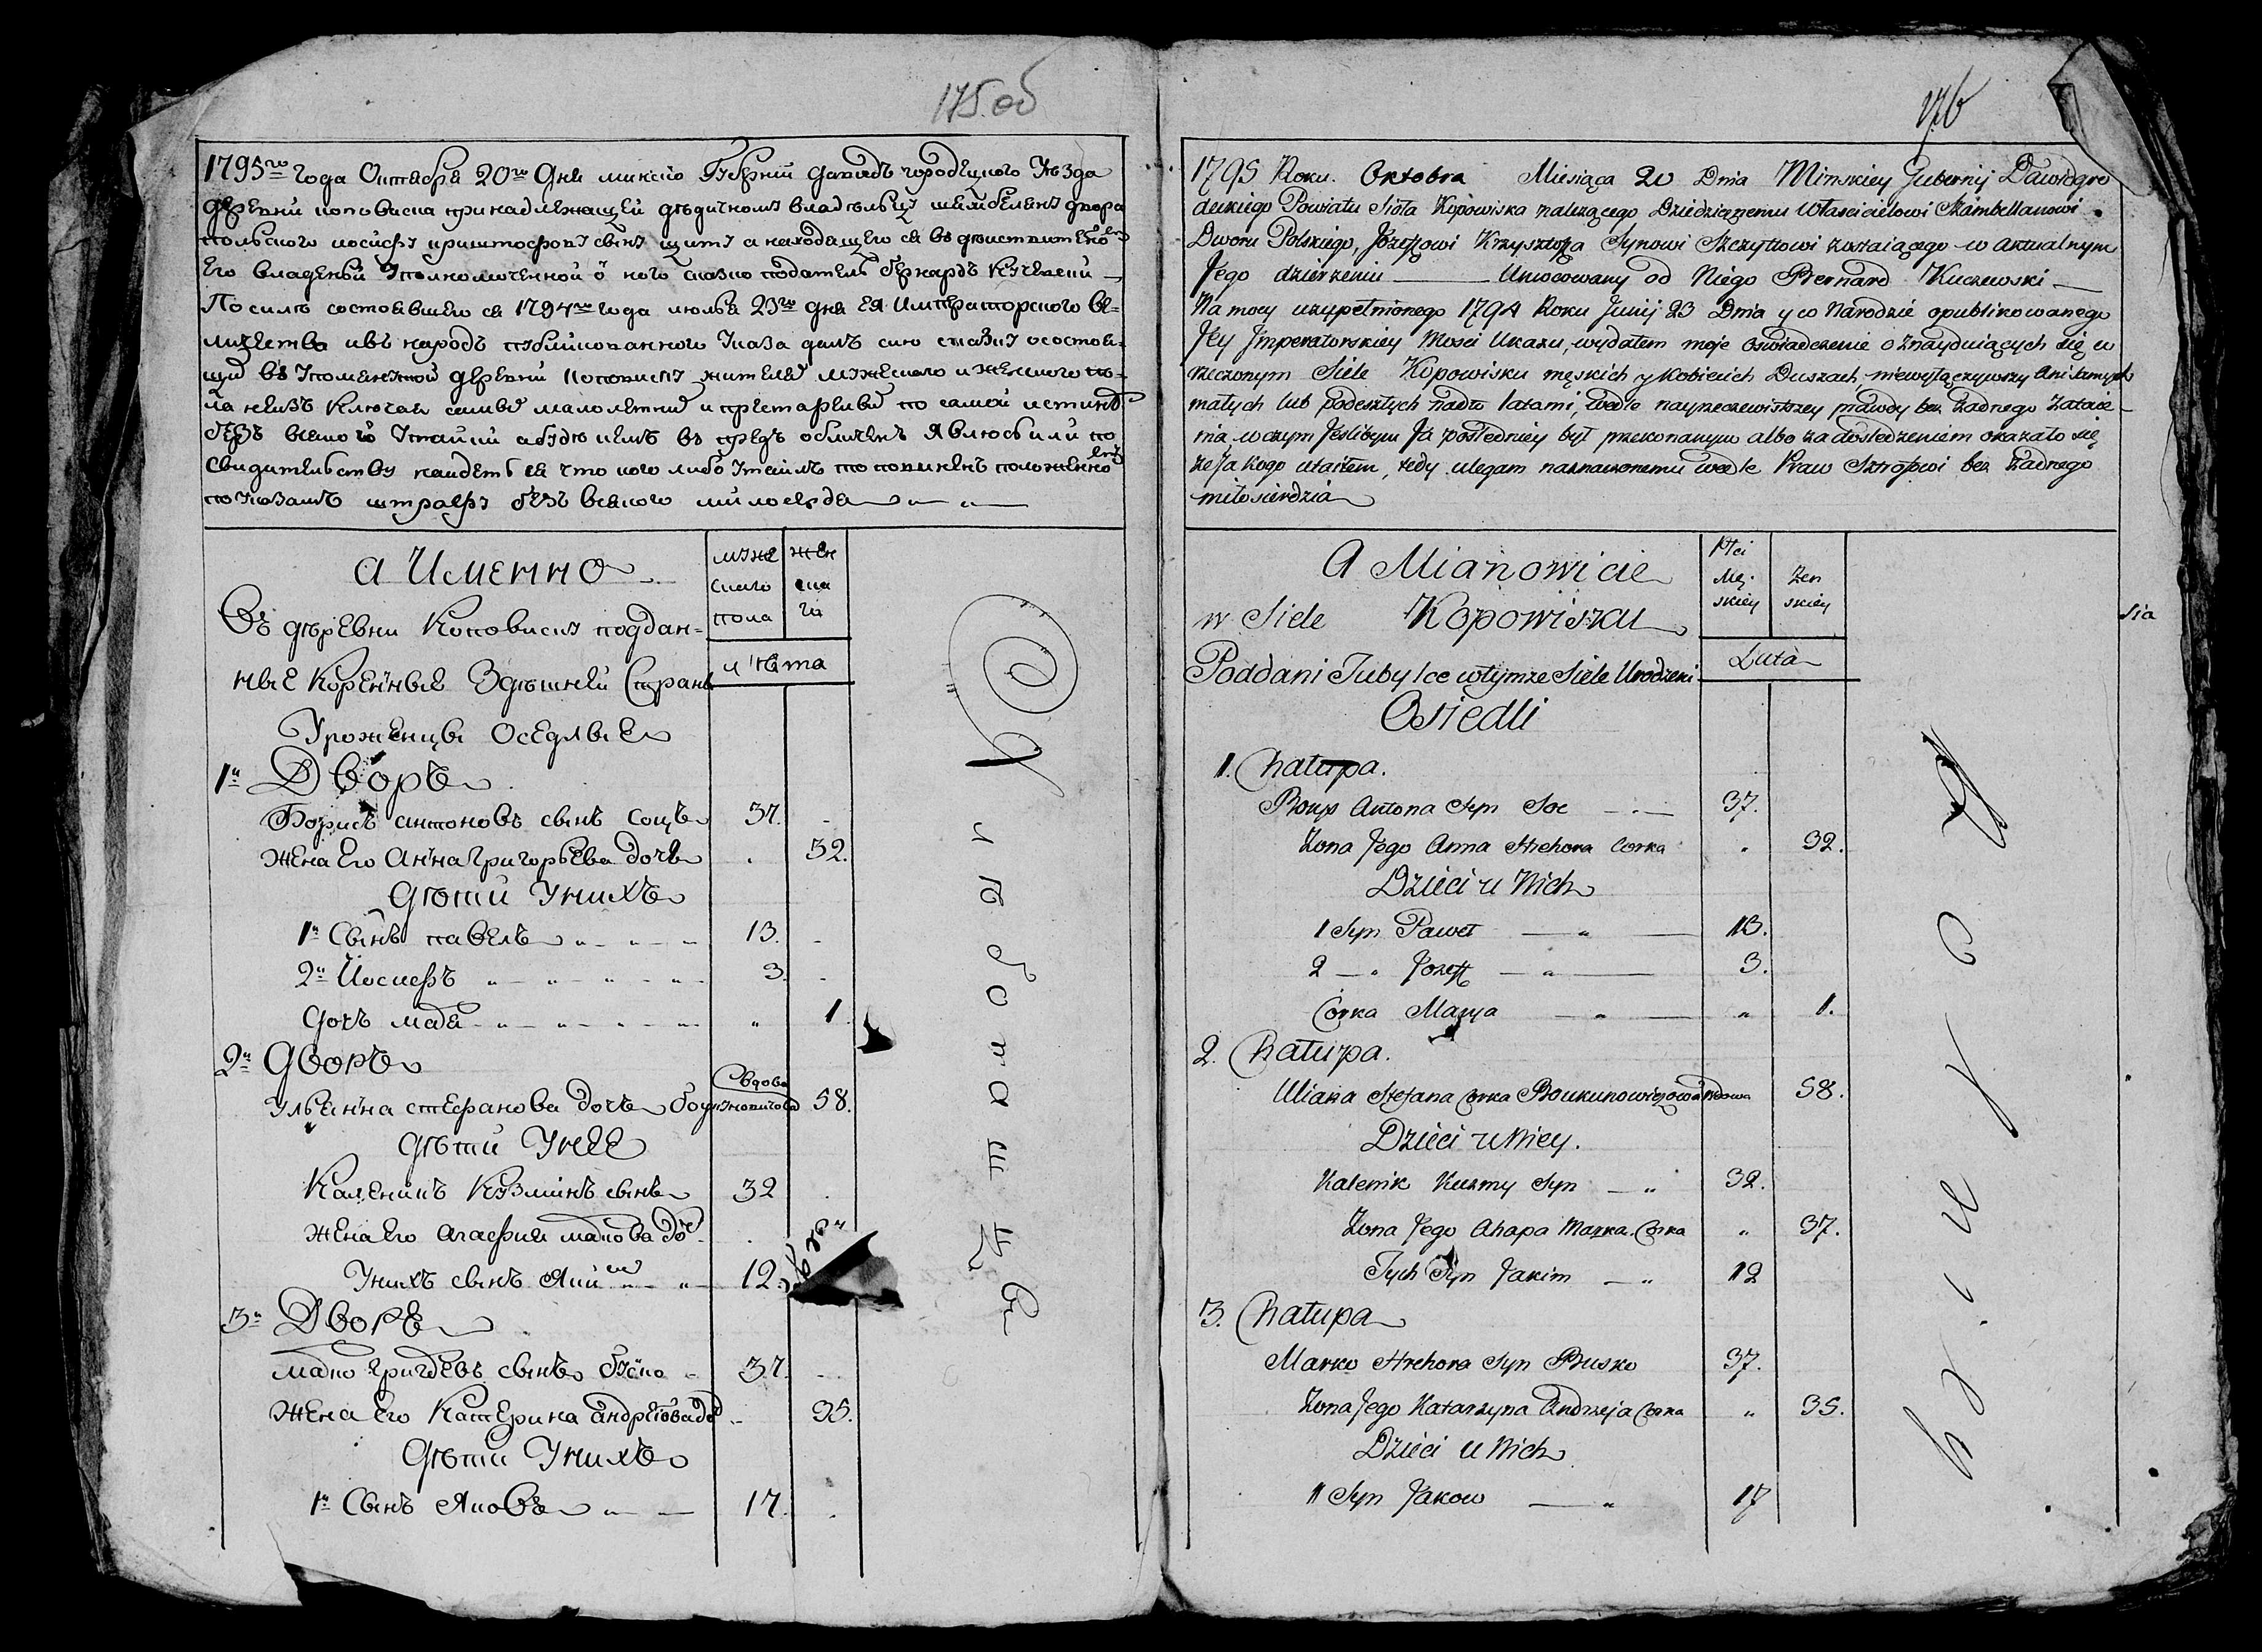 175 об
1795го года Октября 20го Дня минской Губернии Давидъ городецкого Уезда
деревни коповиска принадлежащей дедичному владельцу шамбеляну двора
польского иосифу криштофову сыну щиту а находящего ся въ действительномъ
Его владении Уполномоченной о него сказко податель бернардъ Кучевский —
По силе состоявшего ся 1794го года июня 23го дня ЕЯ Императорского ве-
личества ивъ народъ публикованного Указа далъ сию сказку осостоя-
щих въ Упоменутой деревни Коповиску жителей мужеского и женского по-
ла неизъ Ключая самых малолетних и престарелых по самой истинне
безъ всякого Утайки а буде кемъ въ предъ обличенъ Явлюсь или по
свидительству найдетъ ся что кого либо Утаилъ то повиненъ положенному
по Указамъ штрафу безъ всякого милосердя
а Именно
муже ского пола
жен ска го
Въ деревни Коповиску поддан=
ные Коренные Здешней Страны
лета
Уроженцы Оседлые
1й Дворъ
Борисъ антоновъ сынъ Соцъ 37.
жена Его Анна Григорьева дочь 32.
дети Унихъ
1й Сынъ павелъ 13.
2й Иосифъ 3.
дочь мария 1
2й дворъ
Ульянна стефанова дочь боукуновичова вдова 58.
дети Унее
Каленикъ Кузминъ сынъ 32
жена Его агафия маркова доч
Унихъ сынъ Якимъ 12.
3й Дворъ
марко григоревъ сынъ буско 37.
жена Его Катерина андреёва доч 35.
дети Унихъ
1й Сынъ Яковъ 17.
176
1795 Roku. Oktobra Miesiąca 20 Dnia Minskiey Gubernij Dawidgro
deckiego Powiatu Sioła Kopowiska należącego Dziedzicznemu Właścicielowi Szambellanowi
Dworu Polskiego, Józefowi Krzysztofa Synowi Szczyttowi zostaiącego w aktualnym
Jego dzierżeniu — Umocowany od Niego Bernard Kuczewski —
Na mocy uzupełnionego 1794 Roku Junij 23 Dnia y w Narodzie opublikowanego
Jey Jmperatorskiey Mosci Ukazu, wydałem moje Oswiadczenie o Znayduiących się w
rzeczonym Siele Kopowisku męskich y Kobiecich Duszach, niewyłączywszy Ani samych
małych lub podeszłych nadto latami, wedle nayrzeczewistszey prawdy bez żadnego Zataie-
nia w czym Jeslibym Ja pośledniey był przekonanym albo za dośledzeniem okazało się
że Ja kogo utaiłem, tedy ulegam naznaczonemu wedle Praw Sztrofowi bez żadnego
miłosierdzia
A Mianowicie
Płci Mę- skiey
Zen skiey
w Siele Kopowisku
Lata
Poddani Tubylce wtymże Siele Urodzeni
Osiedli
1. Chałupa.
Borys Antona Syn Soc 37.
Zona Jego Anna Hrehora Corka 32.
Dzieci u Nich
1 Syn Paweł 13.
2 Jozeff 3.
Corka Marya 1.
2. Chałupa.
Uliana Stefana Corka Boukunowiczowa Wdowa 58.
Dzieci u Niey.
Kalenik Kuzmy Syn 32.
Zona Jego Ahapa Marka Corka 37.
Tych Syn Jakim 12
3. Chałupa
Marko Hrehora Syn Busko 37.
Zona Jego Katarzyna Andrzeja Corka 35.
Dzieci u Nich
1 Syn Jakow 17